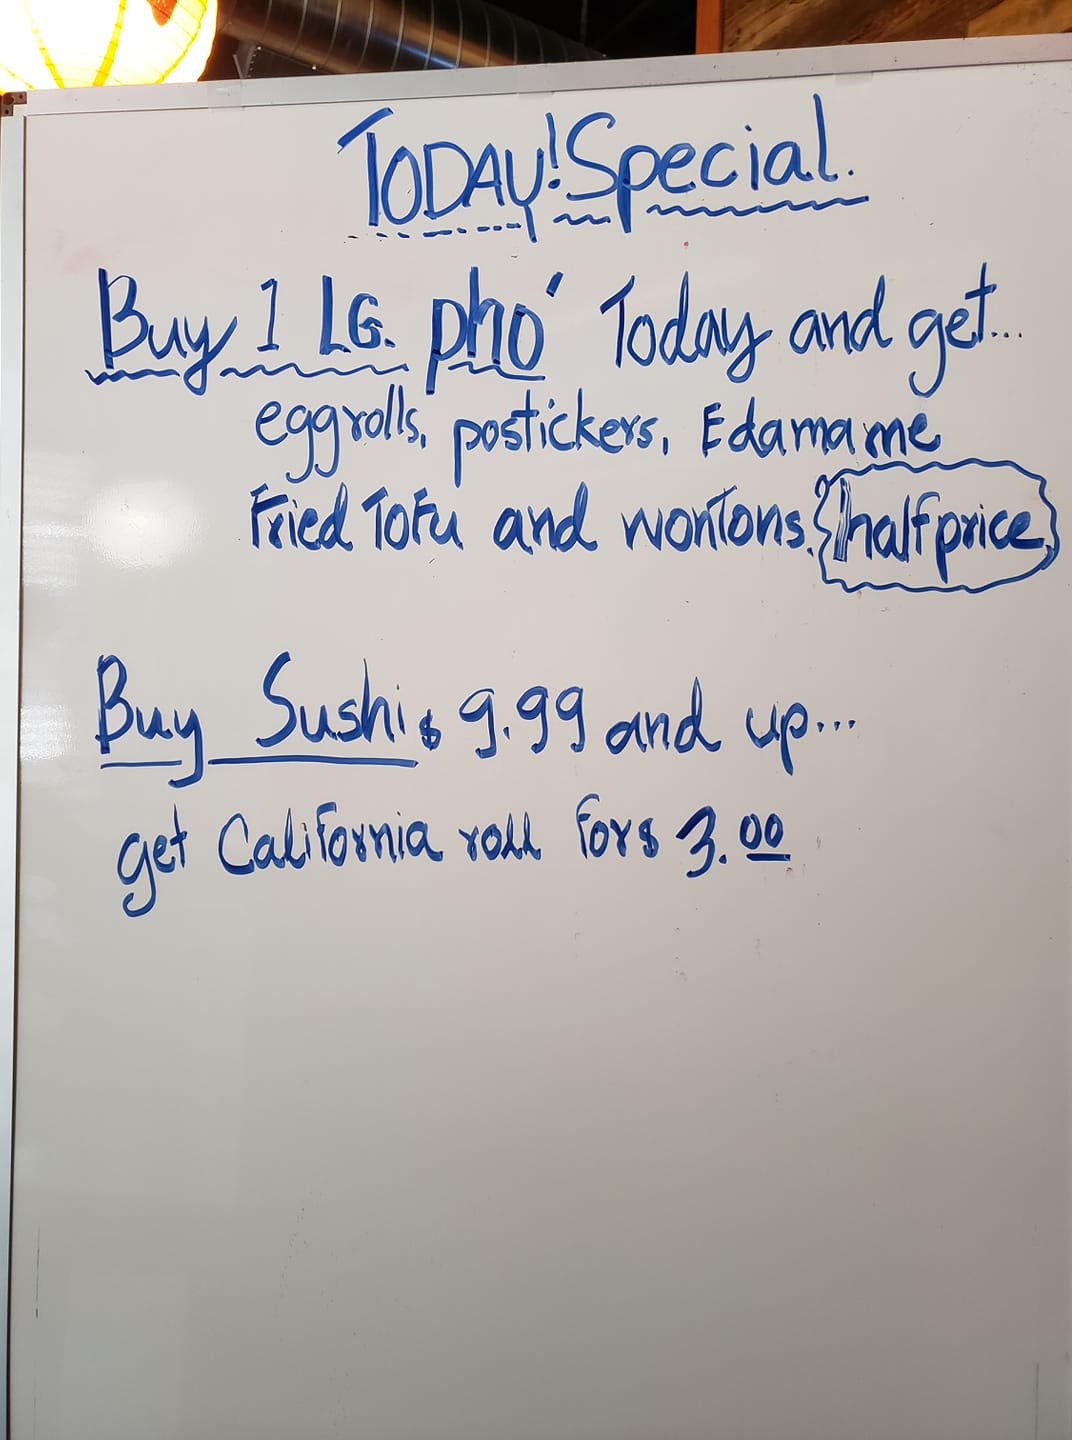 TODAY! Special.
Buy 1 LG. pho' Today and get...
eggrolls, postickers, Edamame
Fried Tofu and wontons. half price
Buy Sushi $ 9.99 and up...
get California roll for $ 3.00